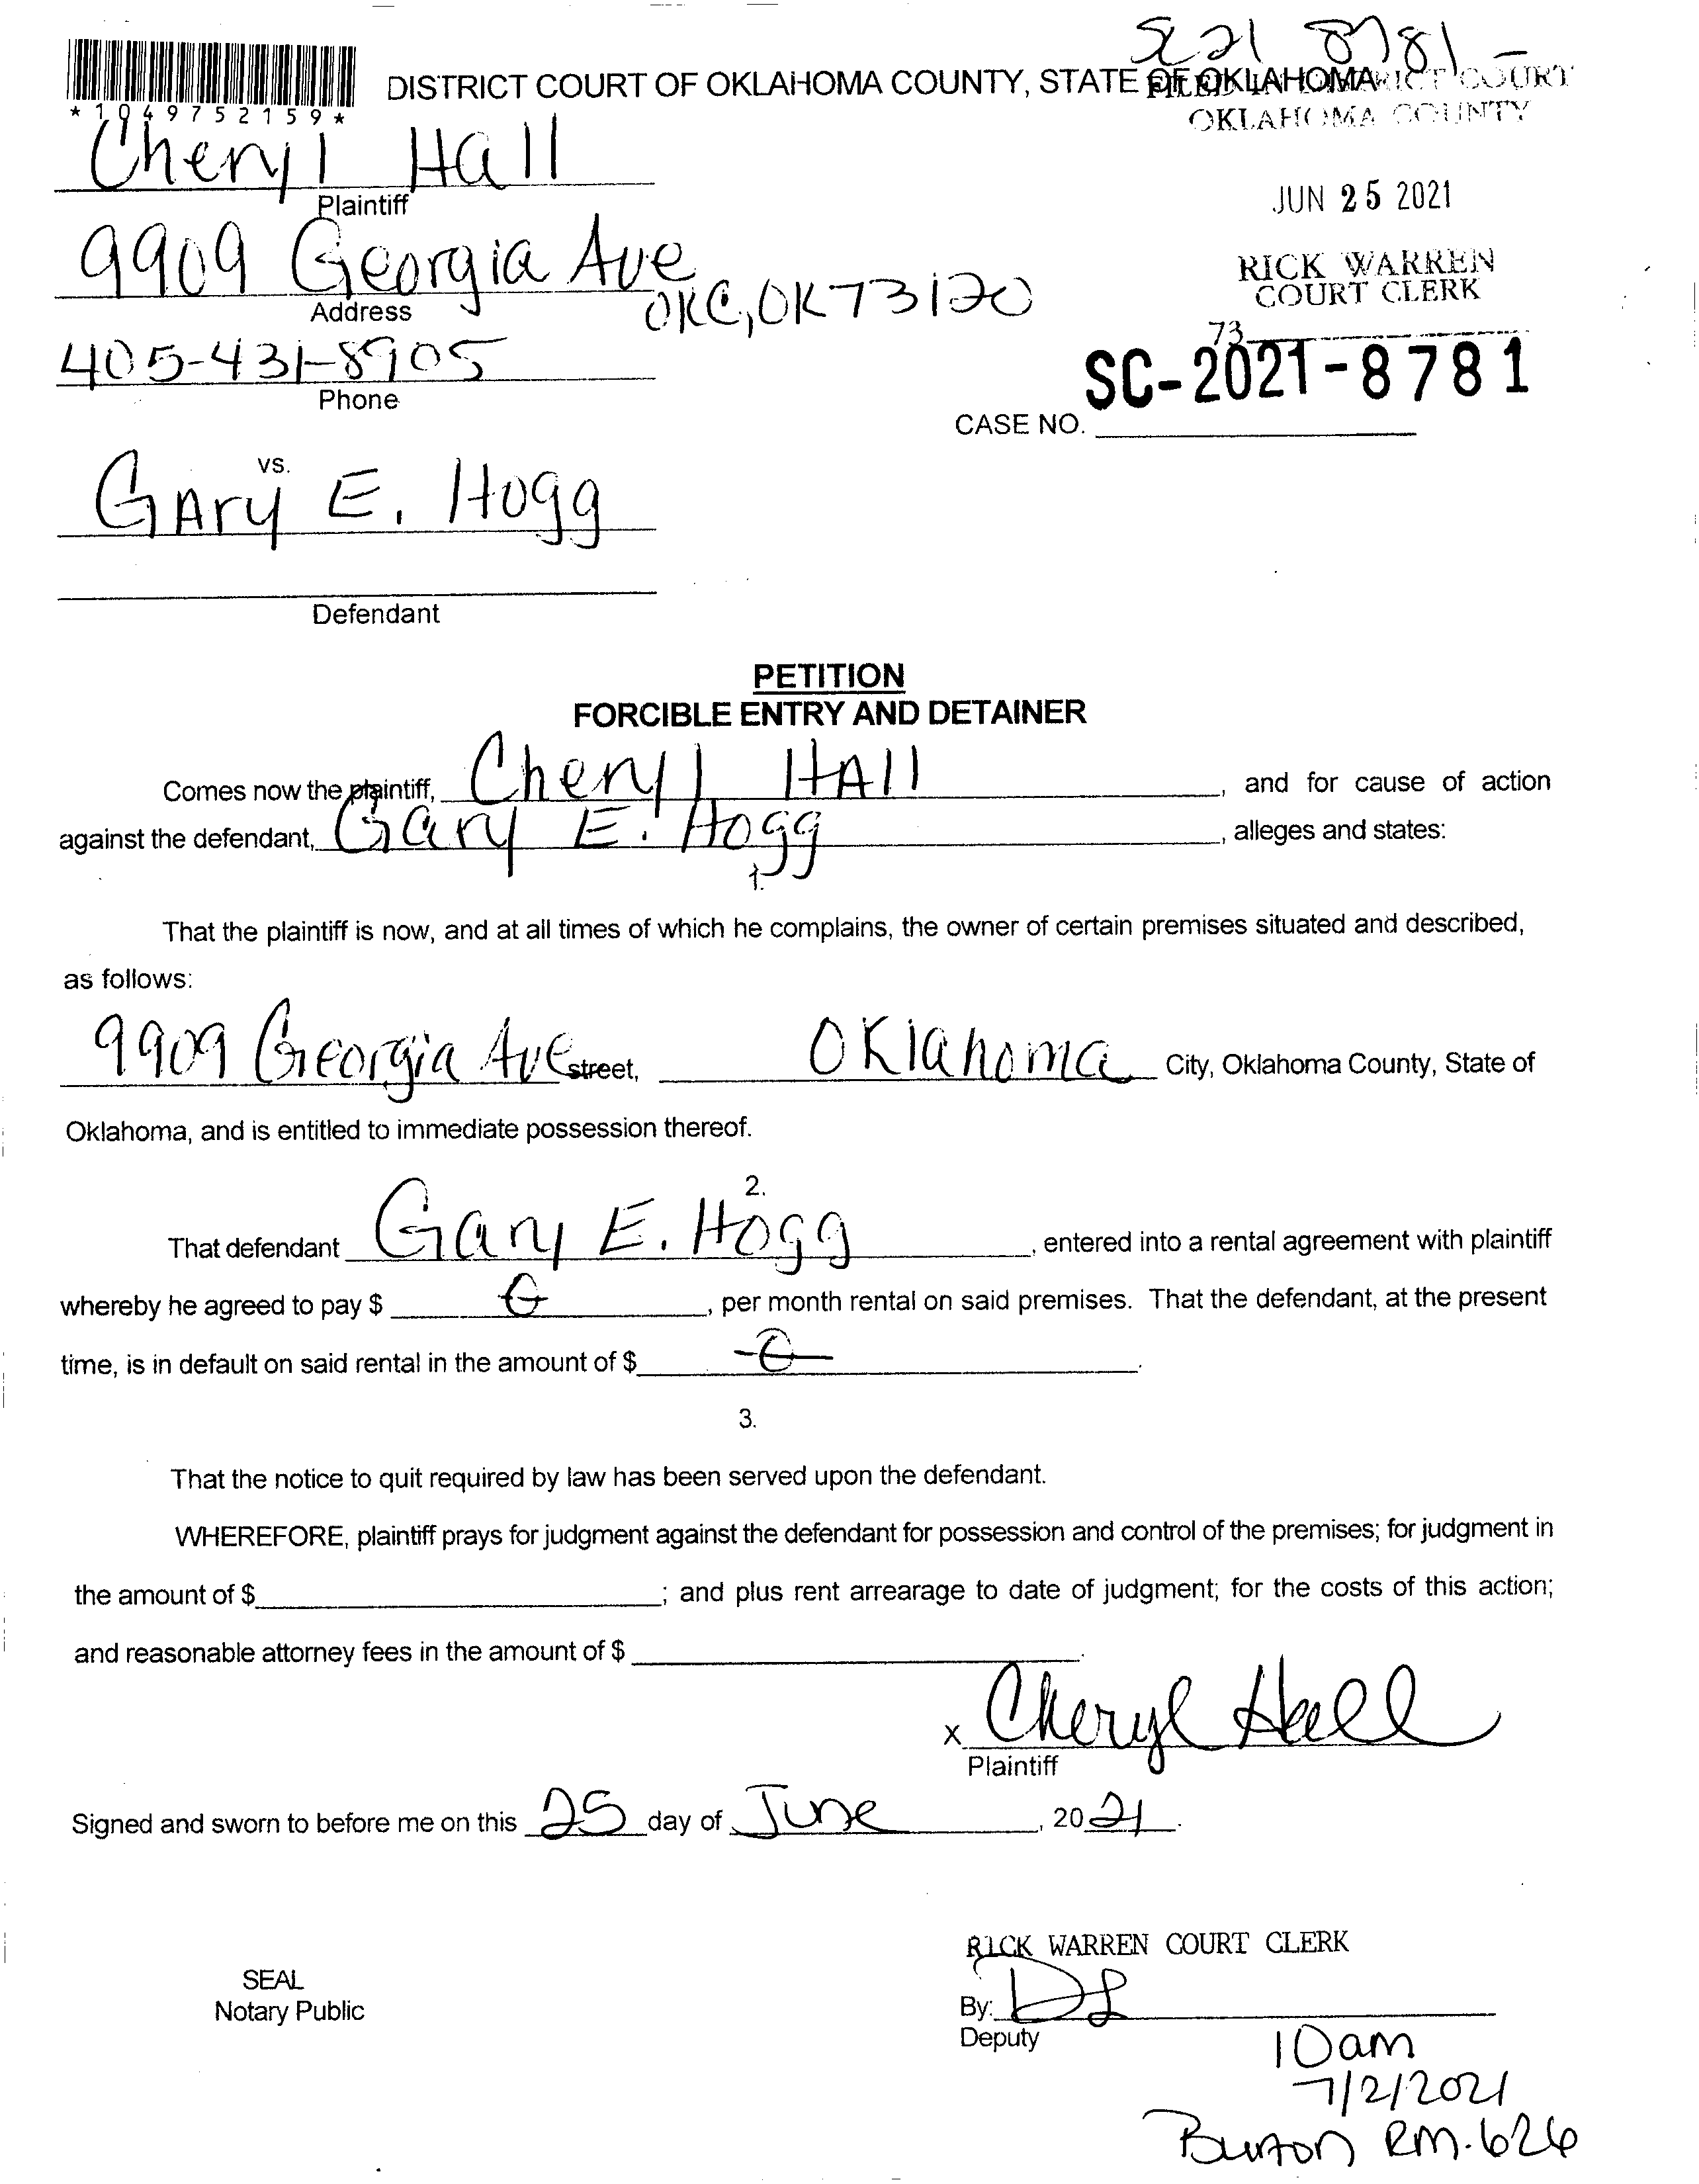 SC 21 8781 -
DISTRICT COURT OF OKLAHOMA COUNTY, STATE OF OKLAHOMA
FILED IN DISTRICT COURT
OKLAHOMA COUNTY
* 1 0 4 9 7 5 2 1 5 9 *
Cheryl Hall
Plaintiff
JUN 25 2021
9909 Georgia Ave
OKC, OK 73120
Address
RICK WARREN
COURT CLERK
73
405-431-8905
Phone
SC-2021-8781
CASE NO.
vs.
GAry E. Hogg
Defendant
PETITION
FORCIBLE ENTRY AND DETAINER
Comes now the plaintiff, Cheryl HAll, and for cause of action
against the defendant, Gary E. Hogg, alleges and states:
1.
That the plaintiff is now, and at all times of which he complains, the owner of certain premises situated and described,
as follows:
9909 Georgia Ave street, Oklahoma City, Oklahoma County, State of
Oklahoma, and is entitled to immediate possession thereof.
2.
That defendant Gary E. Hogg, entered into a rental agreement with plaintiff
whereby he agreed to pay $ 0, per month rental on said premises. That the defendant, at the present
time, is in default on said rental in the amount of $ -0-.
3.
That the notice to quit required by law has been served upon the defendant.
WHEREFORE, plaintiff prays for judgment against the defendant for possession and control of the premises; for judgment in
the amount of $ ; and plus rent arrearage to date of judgment; for the costs of this action;
and reasonable attorney fees in the amount of $ .
x Cheryl Hall
Plaintiff
Signed and sworn to before me on this 25 day of June, 2021.
RICK WARREN COURT CLERK
SEAL
Notary Public
By: DL
Deputy
10am
7/2/2021
Burton RM. 626